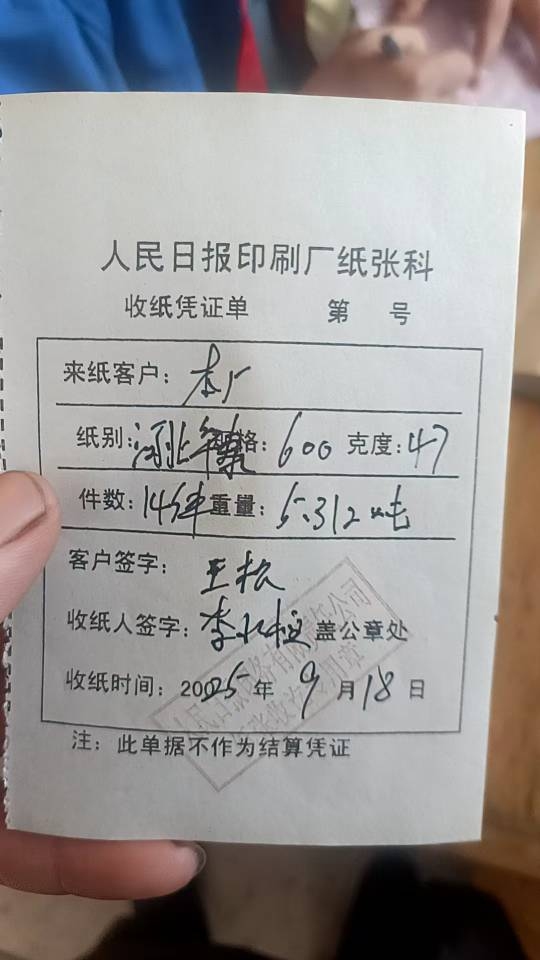 人民日报印刷厂纸张科
收纸凭证单 第 号
来纸客户：本厂
纸别：河北华泰 规格：600 克度：47
件数：14件 重量：5.312吨
客户签字：王松
收纸人签字：李 盖公章处
收纸时间：2025年9月18日
注：此单据不作为结算凭证